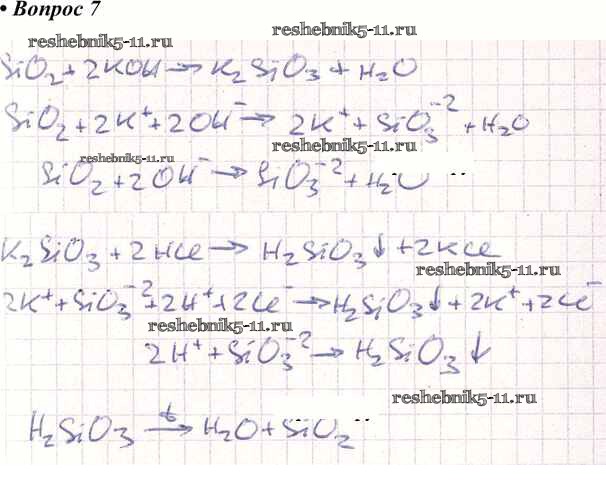 • Вопрос 7
reshebnik5-11.ru
reshebnik5-11.ru
SiO₂ + 2KOH → K₂SiO₃ + H₂O
SiO₂ + 2K⁺ + 2OH⁻ → 2K⁺ + SiO₃⁻² + H₂O
reshebnik5-11.ru
reshebnik5-11.ru
SiO₂ + 2OH⁻ → SiO₃⁻² + H₂O
K₂SiO₃ + 2HCl → H₂SiO₃↓ + 2KCl
reshebnik5-11.ru
2K⁺ + SiO₃⁻² + 2H⁺ + 2Cl⁻ → H₂SiO₃↓ + 2K⁺ + 2Cl⁻
reshebnik5-11.ru
2H⁺ + SiO₃⁻² → H₂SiO₃↓
reshebnik5-11.ru
H₂SiO₃ →ᵗ H₂O + SiO₂